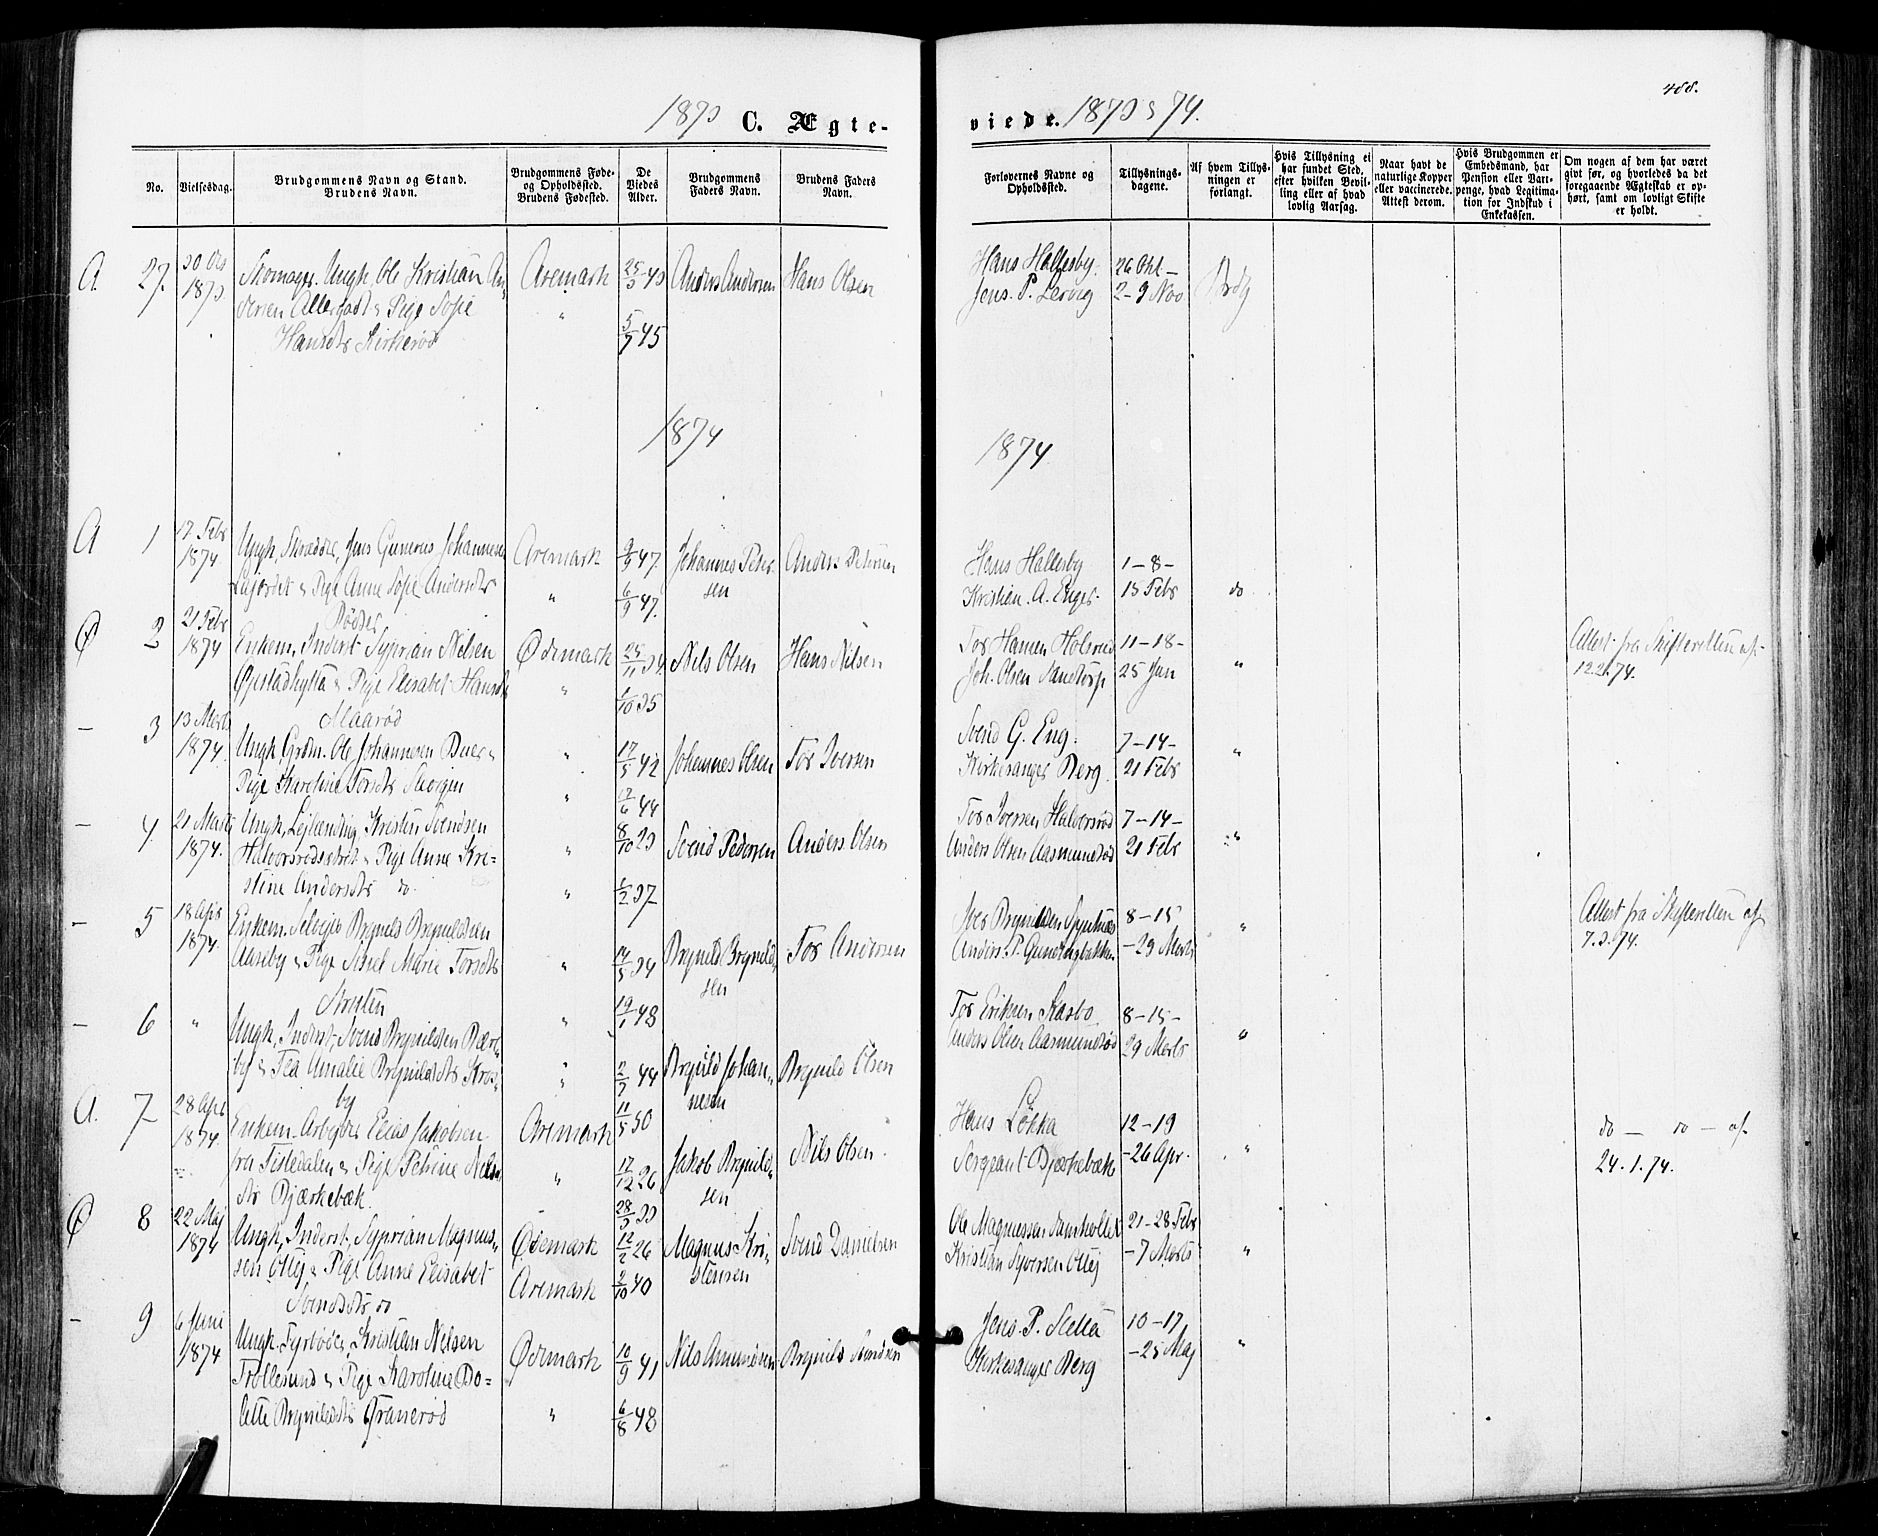 488.
1873 C. Ægte-
viede. 1873 & 74.
No.
Vielsesdag.
Brudgommens Navn og Stand.
Brudens Navn.
Brudgommens Føde-
og Opholdssted.
Brudens Fødested.
De
Viedes
Alder.
Brudgommens
Faders Navn.
Brudens Faders
Navn.
Forlovernes Navne og
Opholdssted.
Tillysnings-
dagene.
Af hvem Tillys-
ningen er
forlangt.
Hvis Tillysning ei
har fundet Sted,
efter hvilken Bevil-
ling eller af hvad
lovlig Aarsag.
Naar havt de
naturlige Kopper
eller vaccinerede.
Attest derom.
Hvis Brudgommen er
Embedsmand, har
Pension eller Vart-
penge, hvad Legitima-
tion for Indskud i
Enkekassen.
Om nogen af dem har været
givt før, og hvorledes da det
foregaaende Ægteskab er op-
hørt, samt om lovligt Skifte
er holdt.
A. 27. 30 Ots
1873.
Skomager. Ungk. Ole Kristian An-
dersen Allergodt & Pige Sofie
Hansdtr Kirkerød
Aremark
"
25/3 43
5/7 45
Anders Andersen
Hans Olsen
Hans Hallesby.
Jens. P. Lervig
26 Okt -
2-9 Nov
Brdg
1874
1874
A 1 17 Febr
1874
Ungk, Skrædder, Jens Gunerus Johannesen
& Pige Anne Sofie Andersdtr
Bødser
Aremark
"
9/9 47.
6/9 47.
Johannes Peter-
sen
Anders Petersen
Hans Hallesby
Kristian. A. Enger.
1-8-
15 Febr
do
Ø 2 21 Febr
1874
Enkem, Inderst Syprian Nilsen
Øjestadhytta & Pige Elisabet Hansdtr
Maarød
Ødemark
"
25/11 34.
1/10 35
Nils Olsen
Hans Nilsen
Tor Hansen Holsrud
Joh. Olsen Sandtorp
11-18-
25 Jan
"
Attest fra Skifteretten af
12.2.74.
- 3 13 Marts
1874.
Ungk, Grdm. Ole Johannesen Buer &
Pige Karoline Torsdtr Skogen
"
"
17/5 42
7/6 44
Johannes Olsen
Tor Iversen
Svend G. Eng.
Kirkesanger Berg.
7-14-
21 Febr
"
- 4. 21 Marts
1874.
Ungk, Lejlending, Kristen Svendsen
Halvorsrødsætret & Pige Anne Kri-
stine Andersdtr do.
"
"
8/10 29
1/2 37
Svend Pedersen
Anders Olsen
Tor Iversen Halvorsrød
Anders Olsen Aasmundrød
7-14-
21 Febr
"
- 5 18 Apr
1874
Enkem. Selvejer Brynild Brynildsen
Aaseby & Pige Sissel Marie Torsdtr
"
"
14/5 34
19/1 48
Brynild Brynild-
sen
Tor Andersen
Iver Brynildsen
Anders. P. Gundengbakken
8-15
-29 Marts
"
Attest fra Skifteretten af
7.3.74.
- 6 "
Ungk, Inderst, Svend Brynildsen Bær-
by & Tea Amalie Brynildsdtr Kros-
by
"
2/7 44
11/5 50
Brynild Johan-
nesen
Brynild Olsen
Tor Eriksen Kasbo
Anders Olsen Aasmundrød
8-15-
29 Marts
"
A. 7 28 Apr
1874
Enkem. Arbejder Elias Jakobsen
fra Tistedalen & Pige Petrine Nels-
dtr Bjærkebæk.
Aremark
"
17/12 26
28/3 33
Jakob Brynild-
sen
Nils Olsen.
Hans Løkka
Sergeant Bjærkebæk
12-19
-26 Apr.
"
do - do - af
24.1.74.
Ø 8 22 Maj
1874
Ungk, Inderst, Syprian Magnus-
sen Otteg & Pige Anne Elisabet
Svendsdtr do
Ødemark
Aremark
12/2 26
2/10 40
Magnus Kri-
stensen
Svend Danielsen
Ole Magnussen
Kristian Syversen Ottej
21-28 Febr
-7 Marts
"
- 9 6 Juni
1874
Ungk. Fyrbøder, Kristian Nilsen
Trollesund & Pige Karoline Bo-
lette Brynildsdtr Granerød
Ødemark
"
10/9 41
6/8 48
Nils Amundsen
Brynild Svendsen
Jens. P. Sletta
Kirkesanger Berg
10-17
-25 Maj
"